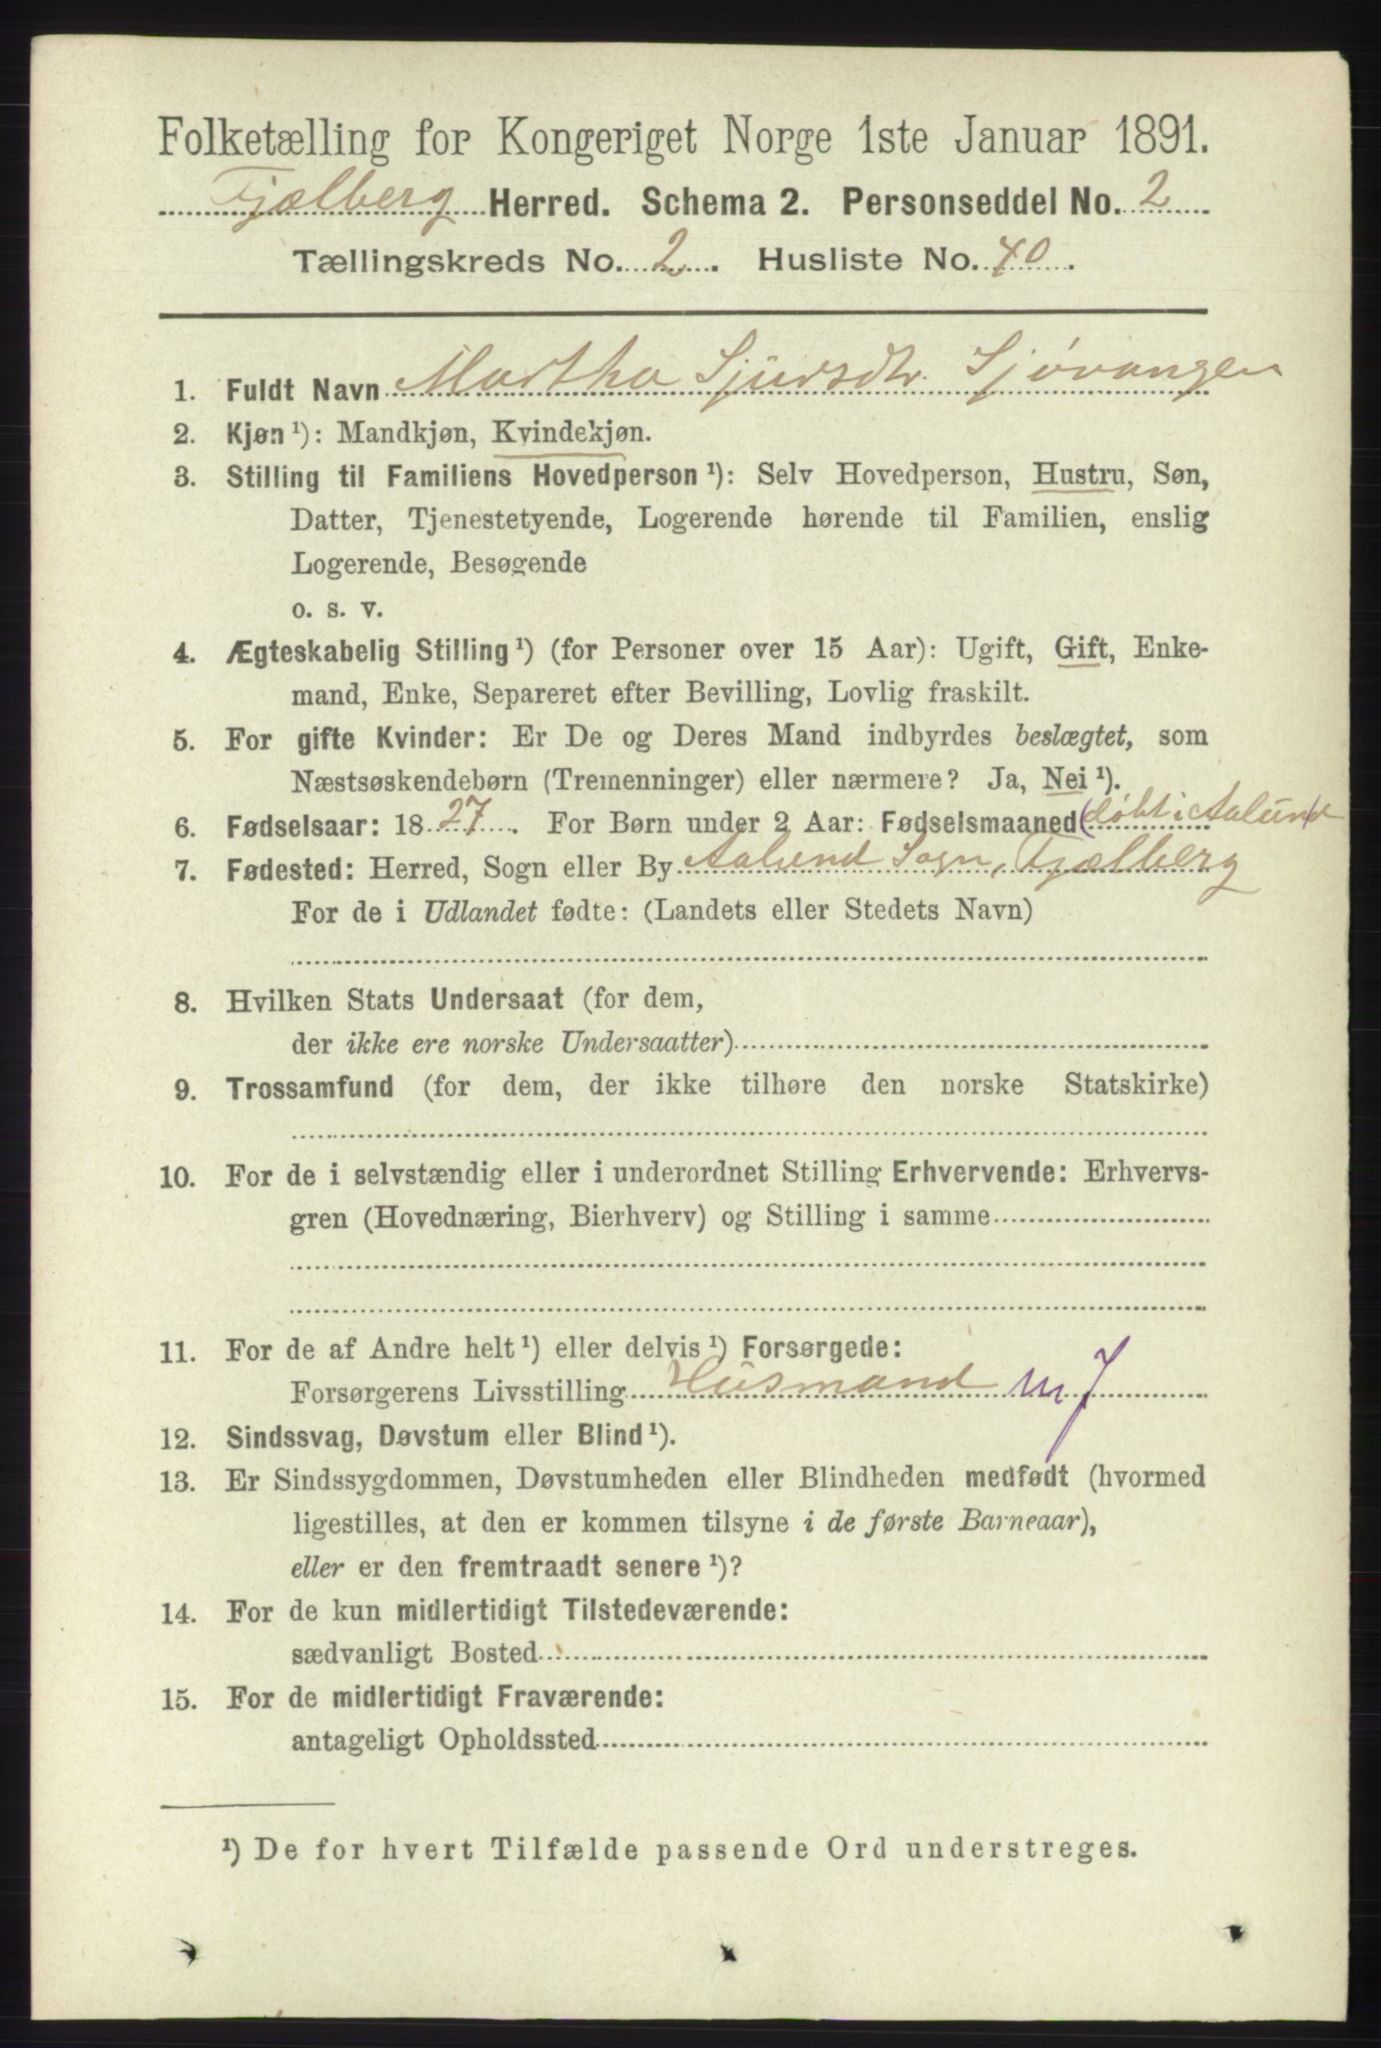 Folketælling for Kongeriget Norge 1ste Januar 1891.
Fjælberg Herred. Schema 2. Personseddel No. 2
Tællingskreds No. 2. Husliste No. 40.
1. Fuldt Navn Martha Sjursdtr. Sjøvangen
2. Kjøn ¹): Mandkjøn, Kvindekjøn.
3. Stilling til Familiens Hovedperson ¹): Selv Hovedperson, Hustru, Søn,
Datter, Tjenestetyende, Logerende hørende til Familien, enslig
Logerende, Besøgende
o. s. v.
4. Ægteskabelig Stilling ¹) (for Personer over 15 Aar): Ugift, Gift, Enke-
mand, Enke, Separeret efter Bevilling, Lovlig fraskilt.
5. For gifte Kvinder: Er De og Deres Mand indbyrdes beslægtet, som
Næstsøskendebørn (Tremenninger) eller nærmere? Ja, Nei ¹).
6. Fødselsaar: 1827. For Børn under 2 Aar: Fødselsmaaned (døbt i Aalund
7. Fødested: Herred, Sogn eller By Aalund Sogn, Fjælberg
For de i Udlandet fødte: (Landets eller Stedets Navn)
8. Hvilken Stats Undersaat (for dem,
der ikke ere norske Undersaatter)
9. Trossamfund (for dem, der ikke tilhøre den norske Statskirke)
10. For de i selvstændig eller i underordnet Stilling Erhvervende: Erhvervs-
gren (Hovednæring, Bierhverv) og Stilling i samme
11. For de af Andre helt ¹) eller delvis ¹) Forsørgede:
Forsørgerens Livsstilling Husmand m J
12. Sindssvag, Døvstum eller Blind ¹).
13. Er Sindssygdommen, Døvstumheden eller Blindheden medfødt (hvormed
ligestilles, at den er kommen tilsyne i de første Barneaar),
eller er den fremtraadt senere ¹)?
14. For de kun midlertidigt Tilstedeværende:
sædvanligt Bosted
15. For de midlertidigt Fraværende:
antageligt Opholdssted
¹) De for hvert Tilfælde passende Ord understreges.